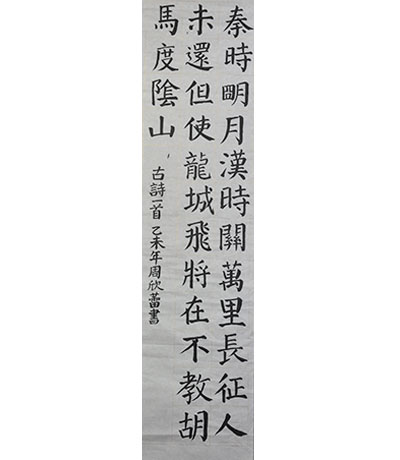 秦時明月漢時關萬里長征人
未還但使龍城飛將在不教胡
馬度陰山
古詩一首乙未年周欣蕾書